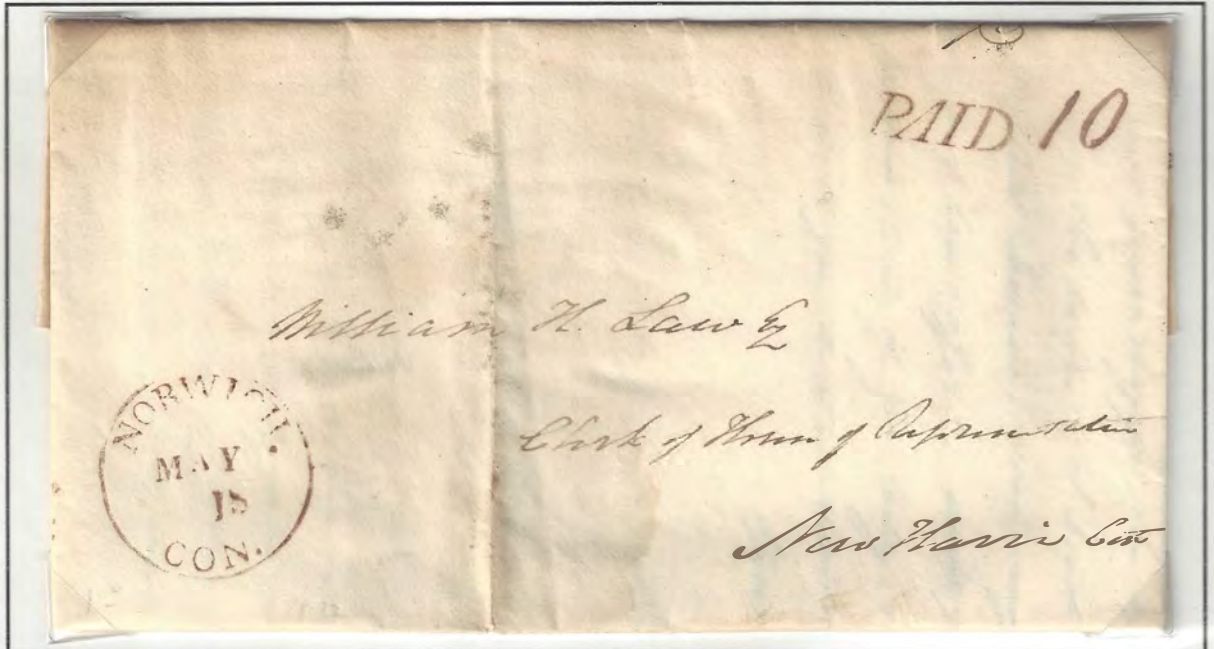 PAID 10
William H. Law Esq
Clerk of House of Representatives
New Haven Con
NORWICH.
MAY
18
CON.